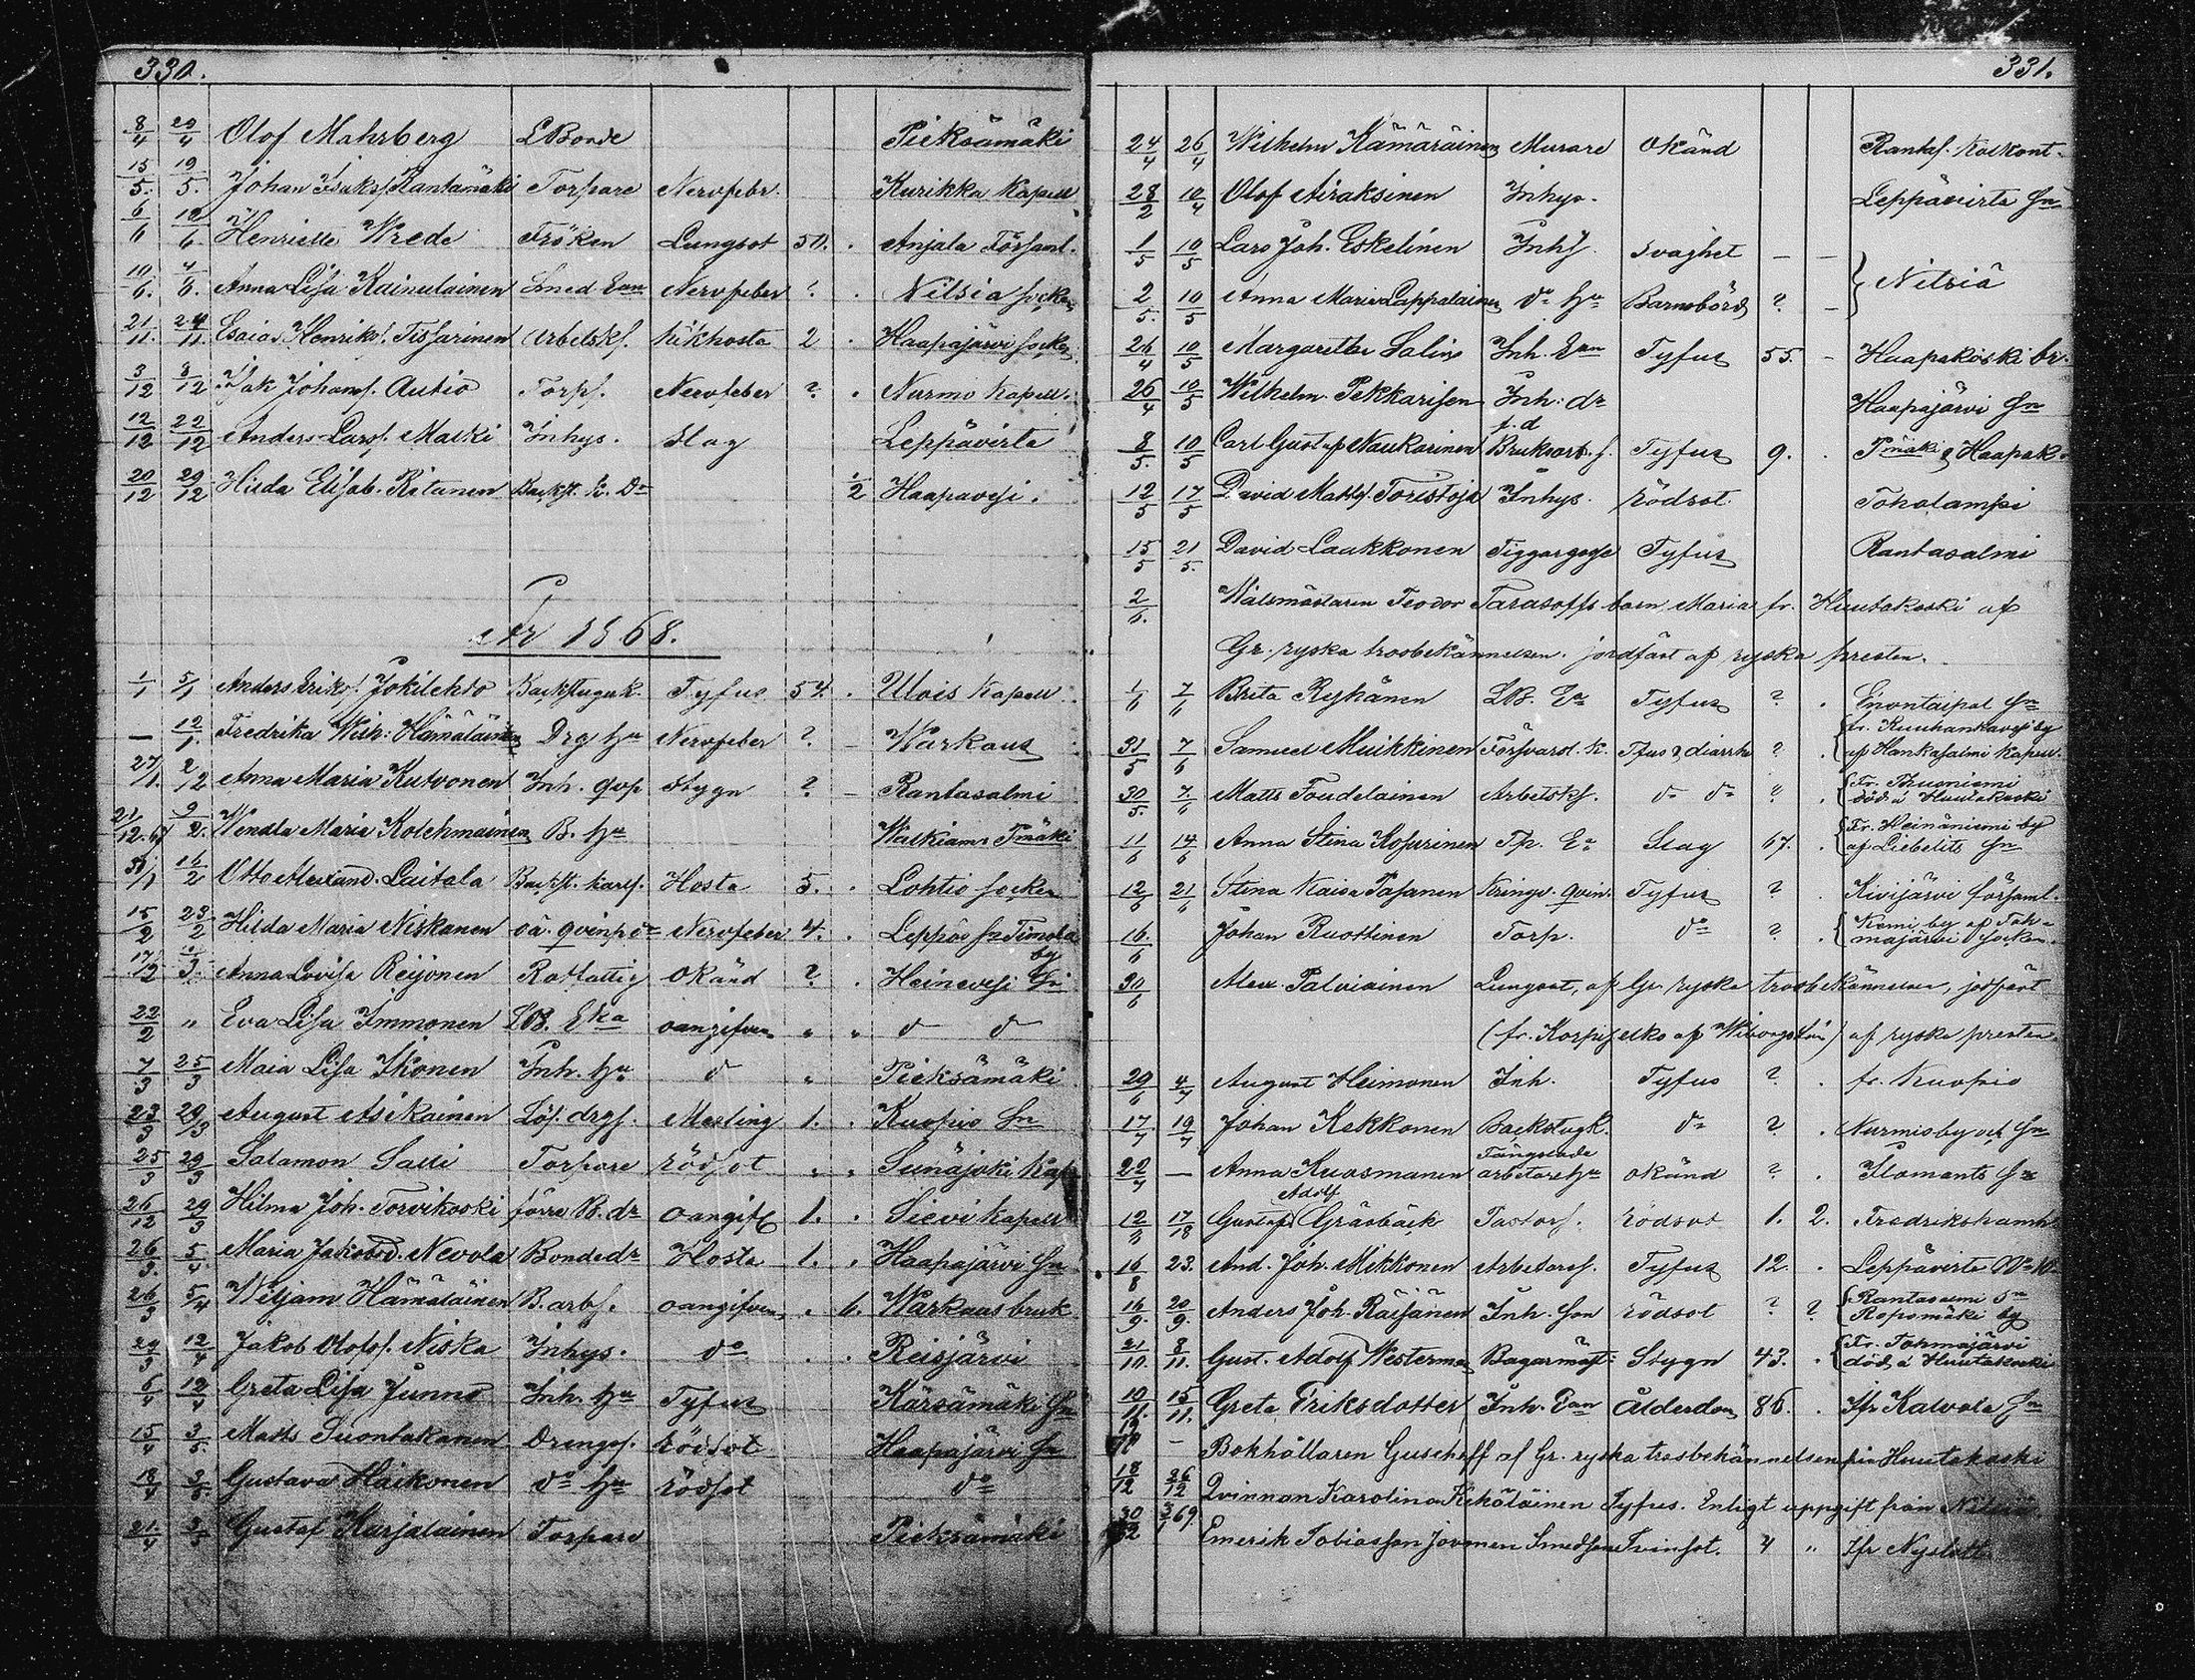 330.
8/4 20/4 Olof Mahrberg LBonde Pieksämäki
15/5. 19/5. Johan Isaksf. Rantamäki Torpare Nervfebr. Kurikka Kapell
6/6 12/6. Henriette Wrede Fröken Lungsot 50. Anjala Församl.
10/6. 4/6. Anna Lisa Kainulainen Smed Ean Nervfeber ? Nilsiä socken
21/11. 24/11. Esaias Henriks. Tissarinen Arbetskf. Kikhosta 2 Haapajärvi socken
3/12 8/12 Isak Johansf. Autio Torpf. Nervfeber ? Nurmo Kapell.
12/12 22/12 Anders Larsf. Matki Inhys. Slag Leppävirta
20/12 29/12 Hilda Elisab. Ritanen Backst. K. Dr 1/2 Haapavesi.
År 1868.
1/1 5/1 Anders Eriksf. Jokilehto Backstuguk. Tyfus 54. Ulvis Kapell
— 12/1. Fredrika Wilh: Hämäläinen Drg hu Nervfeber ? Warkaus
27/1. 2/12 Anna Maria Kutvonen Inh. qvf Stygn ? Rantasalmi
21/12.67 9/2. Wendla Maria Kolehmainen B. hu Pmäki
31/1 16/2 Otto Alexand. Laitala Backst. karls. Hosta 5. Lohtio socken
15/2 23/2 Hilda Maria Niskanen oä. qvinps dr Nervfeber 4. Leppäv sn Timola by
17/12 /3. Anna Lovisa Reijonen Rotfattig Okänd ? Heinevesi Sn
22/2 " Eva Lisa Immonen LB. Eka oangifven " " d d
7/3 25/3 Maia Lisa Ikonen Inh. hu d " Pieksämäki
23/3 29/3 August Asikainen Lös. drgs. Mesling 1. Kuopio Sn
25/3 29/3 Salamon Salli Torpare Rödsot " " Kap
26/12 29/3 Hilma Joh. Torvikoski förre B. dr oangift 1. Sievi Kapell
26/3. 5/4. Maria Jakobsd. Nevola Bondedr Hosta 1. Haapajärvi Sn
26/3 5/4 Wiljam Hämäläinen B. arbs. oangifven " 6. Warkaus bruk
29/3 12/4 Jakob Olofsf. Niska Inhys. do Reisjärvi
6/4 12/4 Greta Lisa Junno Inh. hu Tyfus Kärsämäki Sn
15/4 3/5. Matts Suontakanen Drengs. Rödsot Haapajärvi Sn
18/4 3/5. Gustava Häikonen do hu Rödsot do
21/4 3/5 Gustaf Karjalainen Torpare Pieksämäki
331.
24/4 26/4 Wilhelm Kämäräinen Murare Okänd Rantas.
28/2 10/4 Olof Airaksinen Inhys. Leppävirta Sn
1/5 10/5 Lars Joh. Eskelinen Inhs Svaghet — — Nilsiä
2/5. 10/5 Anna Maria Lappalainen do hu Barnsbörd ? —
26/4 10/5 Margaretha Salin Inh. Ean Tyfus 55. — Haapakoski br.
26/4 10/5 Wilhelm Pekkarisen Inh: dr Haapajärvi Sn
8/5. 10/5 Carl Gustaf Naukarinen f. d Bruksarb. s. Tyfus 9. Pmäki & Haapak.
12/5 17/5 David Mattsf. Toristoja Inhys. Rödsot Toholampi
15/5 21/5. David Laukkonen Tiggargosse Tyfus Rantasalmi
2/6. Teodor Tarasoffs barn Maria fr. Huutokoski af
Gr. ryska trosbekännelsen. jordfäst af ryska presten.
1/6 7/6 Brita Ryhänen LB. Ea Tyfus ? Enontaipal Sn
31/5 7/6 Samuel Muikkinen Försvarsl. k. Tfus & diarrh ? fr. by af Hankasalmi Kapell.
30/5. 7/6 Matts Toudelainen Arbetskf. do do ? Fr. död å Huutokoski
11/6 14/6 Anna Stina Kosurinen Tp. Ea Slag 67. Fr. Heinäniemi by af Liebelits Sn
12/6 21/6 Stina Kaisa Pasanen Kringv. qvin. Tyfus ? Kivijärvi församl.
16/6 Johan Ruottinen Torp. do ? Kemi by af Tohmajärvi socken
30/6 Alex. Palviainen Lungsot, af Gr. ryska trosbekännelsen, jordfäst
(fr. Korpiselkä af Wiborgs län) af ryska presten
29/6 4/7 August Heimonen Inh. Tyfus ? fr. Kuopio
17/7 19/7 Johan Kekkonen Backstugk. do ? Nurmis by och Sn
22/7 — Anna Kuosmanen Fängslade arbetare hu okänd ? Ilomants Sn
12/8 17/18 Gustaf Adolf Gråsbäck Pastors. Rödsot 1. 2. Fredrikshamn
16/8 23. And. Joh. Mikkonen Arbetares. Tyfus 12. Leppävirta No 10
16/9. 20/9. Anders Joh. Räisänen Inh. son Rödsot ? ? Rantasalmi Sn Roposmäki by
21/10. 8/11. Gust. Adolf Westerman Bagarmäst: Stygn 43. Fr. Tohmajärvi död å Huutokoski
10/11. 15/11. Greta Eriksdotter Inh. Ean Ålderdom 86. Ifr Kalvola Sn
— Bokhållaren Guscheff af Gr. ryska trosbekännelsen från Huutokoski
18/12 26/12 Qvinnan Karolina Kekäläinen Tyfus. Enligt uppgift från Nilsiä
30/12 3/1 69. Emerik Tobiasson Jovonen Smedson Tvinsot. 4 " Ifr Nyslott